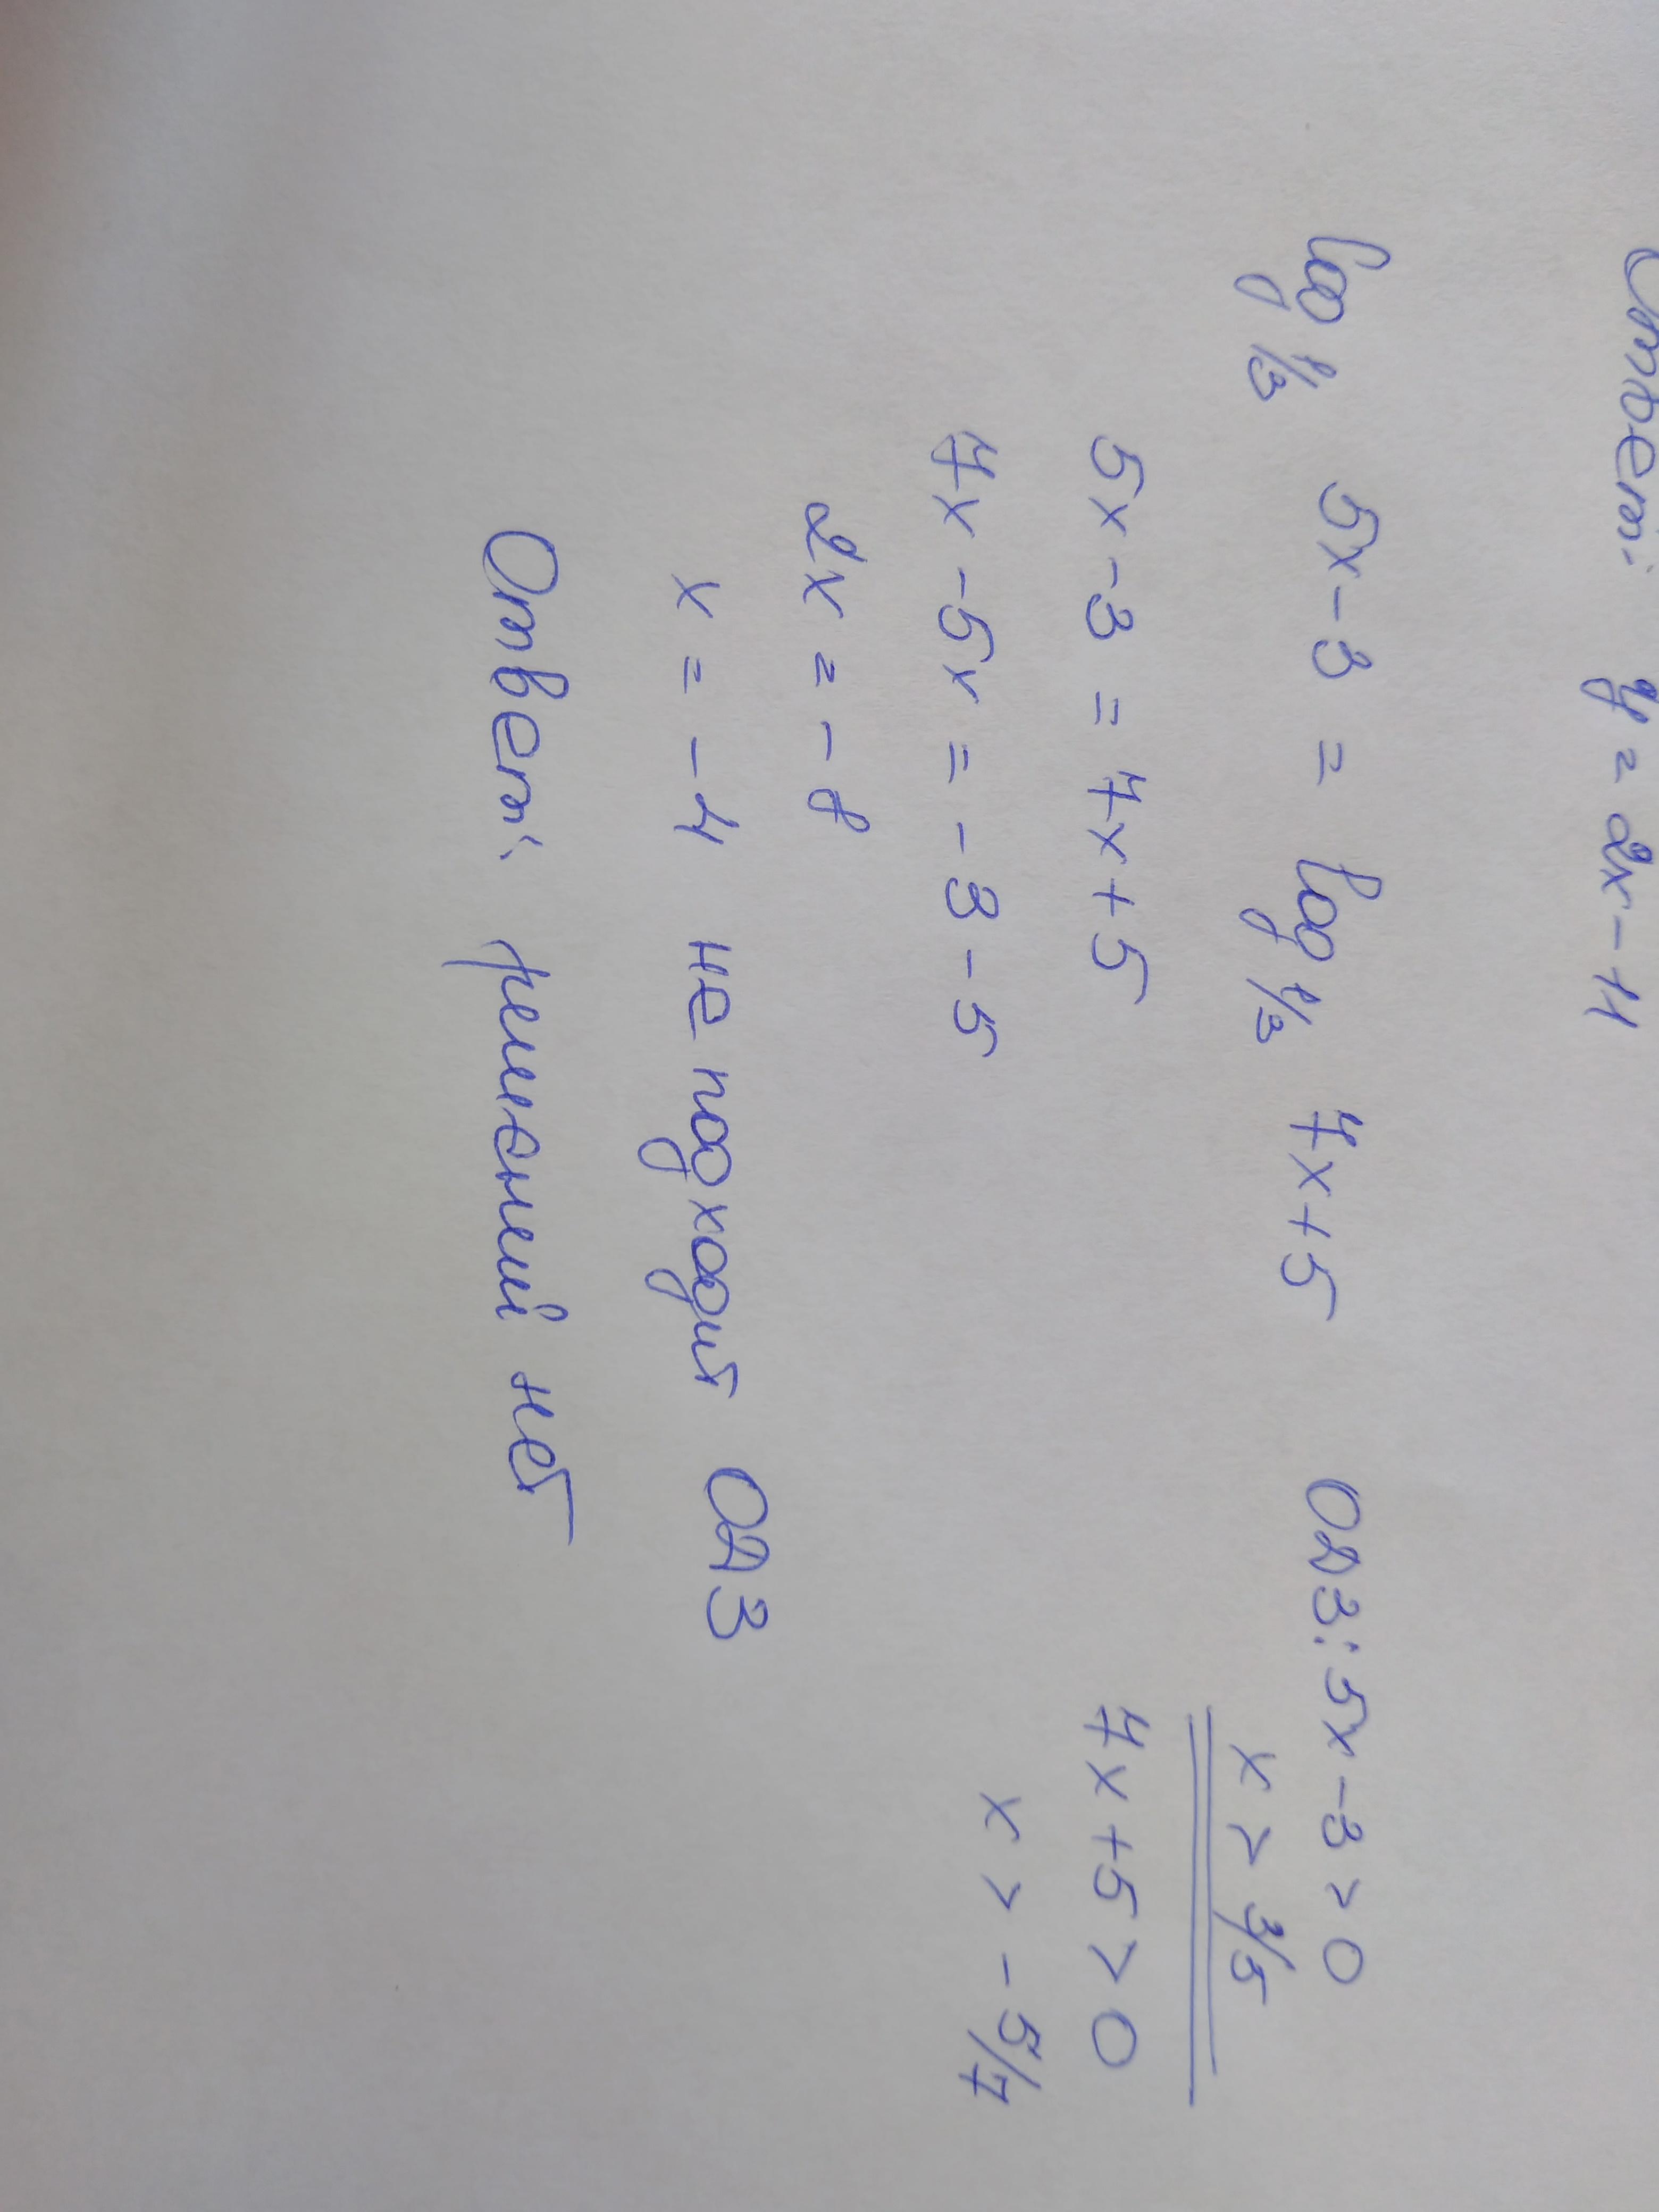 Ответ: y = 2x - 11
log 1/3 5x - 3 = log 1/3 7x + 5 ОДЗ: 5x - 3 > 0
x > 3/5
5x - 3 = 7x + 5 7x + 5 > 0
7x - 5x = - 3 - 5 x > - 5/7
2x = - 8
x = - 4 не подходит ОДЗ
Ответ: решений нет